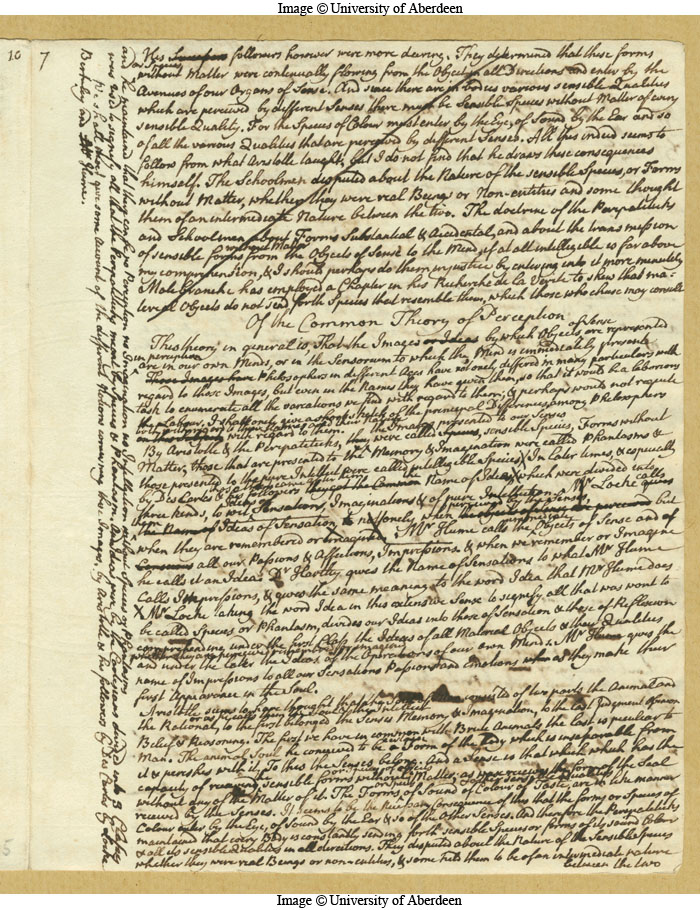 Image © University of Aberdeen
10
7
His followers however were more daring. They determined that these forms
without Matter were continually flowing from the Object in all Directions and enter by the
Avenues of our Organs of Sense. And since there are in bodies various sensible Qualities
which are perceived by different Senses there must be Sensible Species without Matter of every
sensible Quality. For the Species of Colour must enter by the Eye, of Sound by the Ear and so
of all the various Qualities that are perceived by different Senses. All this indeed seems to
follow from what Aristotle taught, yet I do not find that he draws these consequences
himself. The Schoolmen disputed about the Nature of the sensible Species, or Forms
without Matter, whether they were real Beings or Non-entities and some thought
them of an intermediate Nature between the two. The doctrine of the Peripateticks
and Schoolmen about Forms Substantial & Accidental, and about the transmission
without Matter
of sensible forms from the Objects of Sense to the Mind, if at all intelligible is so far above
my comprehension, & I should perhaps do them injustice by entering into it more minutely
Malebranche has employed a Chapter in his Recherche de la Verite to shew that ma-
terial Objects do not send forth Species that resemble them, which those who chuse may consult
Of the Common Theory of Perception
of Sense
This theory in general is That the Images or Ideas by which Objects are represented
in perception
are in our own Minds, or in the Sensorium to which the Mind is immediately present
Those Images have Philosophers in different Ages have not only differed in many particulars with
regard to those Images, but even in the Names they have given them, so that it would be a laborious
task to enumerate all the variations we find with regard to them; & perhaps would not requite
the Labour. I shall only give a short sketch of the principal Differences among Philosophers
with regard to them.
By Aristotle & the Peripateticks, the Images presented to our Senses
were called sensible Species, Forms without
Matter; those that are presented to the Memory & Imagination were called Phantasms &
those presented to the pure Intellect were called intelligible Species. In later times, & especially
by Des Cartes & his followers they got the Common Name of Ideas, which were divided into
three kinds, to wit, Sensations, Imaginations & of pure Intellection. Mr Locke gives
the Name of Ideas of Sensation not only when the objects of sense are perceived but
when they are remembered or imagined. Mr Hume calls the Objects of Sense and of
all our Passions & Affections, Impressions, & when we remember or Imagine
he calls it an Idea. Dr Hartley gives the Name of Sensations to what Mr Hume
Calls Impressions, & gives the same meaning to the word Idea that Mr Hume does
X Mr Locke taking the word Idea in this extensive Sense to signify all that was wont to
be called Species or Phantasm, divides our Ideas into those of Sensation & those of Reflexion
comprehending under the first Class the Ideas of all Material Objects & their Qualities
and under the later the Ideas of the Operations of our own Minds. Mr Hume gives the
name of Impressions to all our Sensations Passions and emotions when as they make their
first Appearance in the Soul.
Aristotle seems to have thought that the consisted of two parts the Animal and
the Rational, to the first belonged the Senses Memory, & Imagination, to the last Judgment opinion
Belief & Reasoning. The first we have in common with Brute Animals the last is peculiar to
Man. The animal Soul he conceived to be a Form of the Body which is inseparable from
it & perishes with it. To this the Senses belong. And a Sense is that which which has the
capacity of receiving sensible forms without Matter; as wax receives the form of the Seal
without any of the Matter of it. The Forms of Sound of Colour of Taste, are in like manner
received by the Senses. It seems to be the necessary Consequence of this that the forms or Species of
Colour enter by the Eye, of Sound by the Ear & so of the other Senses. And therefore the Peripateticks
maintained that every Body is constantly sending forth sensible Species or forms of its sound Colour
& all its sensible Qualities in all directions. They disputed about the Nature of the Sensible Species
whether they were real Beings or non-entities, & some held them to be of an intermediate nature
between the two
and he maintained that they can have Perception no Imagination no Intellection without Species or Phantasms
was used to signify all that the Peripateticks meant by Species & Phantasm. And Ideas were by the Cartesians divided into 3 Classes
We shall therefore give some account of the different Notions concerning these Images, by Aristotle & his followers by Des Cartes by Locke
Berkeley and Mr Hume.
5
Image © University of Aberdeen